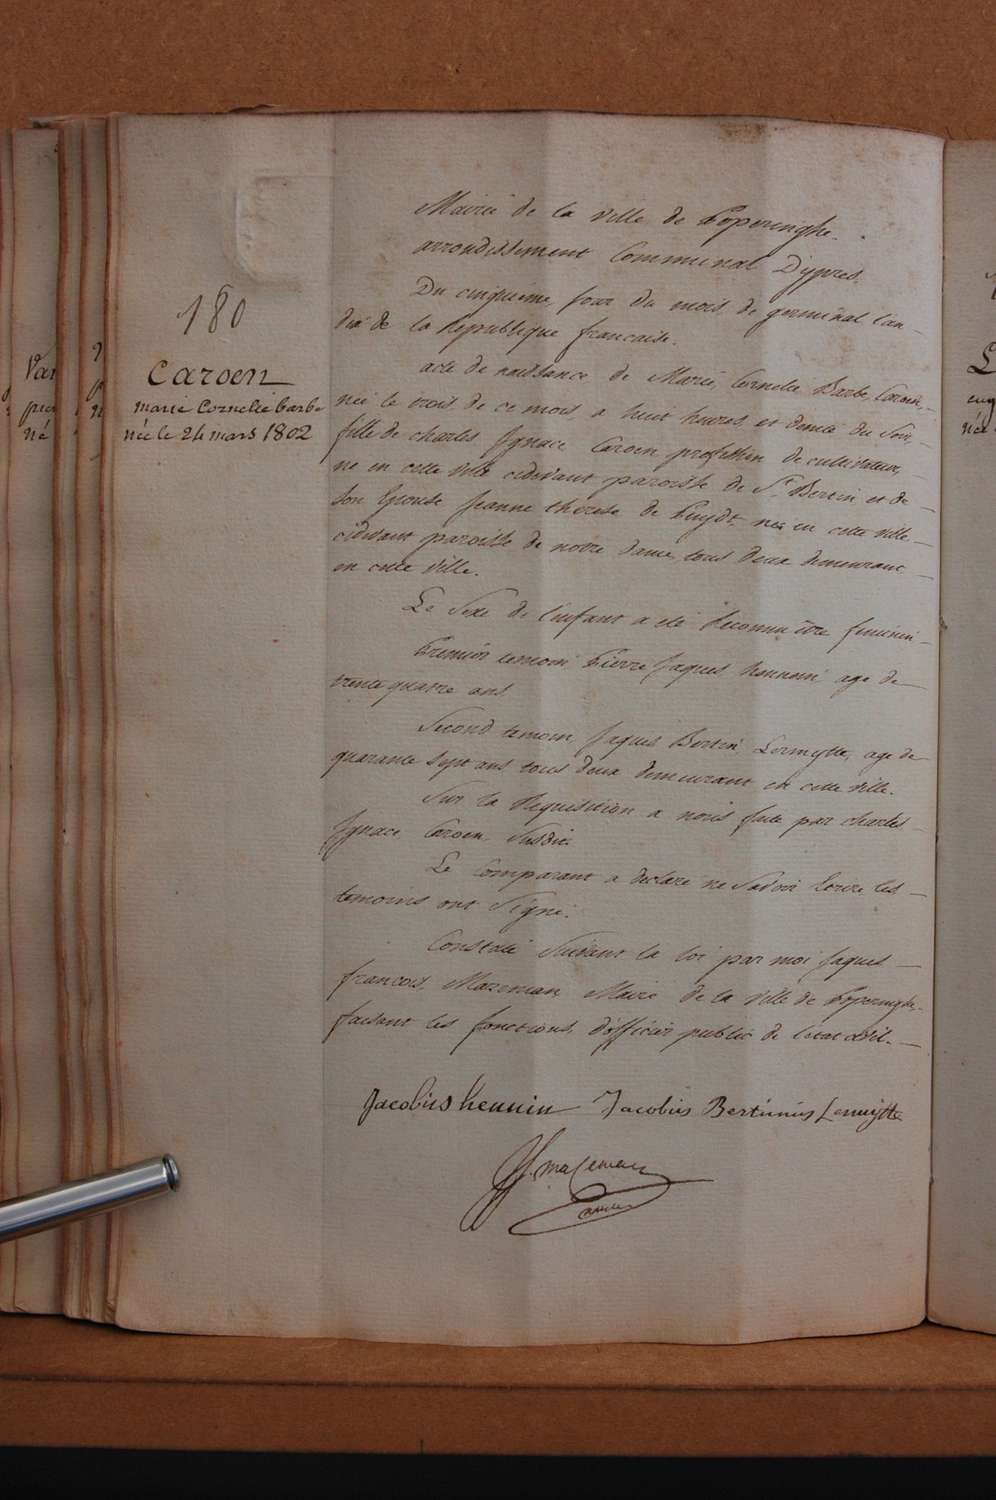 180
Caroen
marie Cornelie barbe
née le 24 mars 1802
Mairie de la ville de Poperinghe.
arrondissement Communal Dypres.
Du cinquieme jour du mois de germinal l'an
dix de la Republique francaise.
acte de naissance de Marie Cornelie Barbe Caroen,
neé le trois de ce mois a huit heures et demie du Soir,
fille de charles Ignace Caroen profession de cultivateur,
né en cette ville cidevant paroisse de St. Bertin et de
son Epouse Jeanne therese de Puydt, neé en cette ville
cidevant paroisse de notre dame, tous deux demeurant
en cette ville.
Le Sexe de l'enfant a eté Reconnu être feminin
Premier temoin Pierre Jaques hennin age de
trente quatre ans
Second temoin Jaques Bertin Lermytte, age de
quarante Sept ans tous deux demeurant en cette ville.
Sur la Requisition a nous faite par charles
Ignace Caroen Susdit
Le Comparant a declaré ne Savoir Ecrire les
temoins ont Signé.
Constaté Suivant la loi par moi Jaques
francois Mazeman Maire de la ville de Poperinghe
faisant les fonctions d'officier public de l'etat civil.
Jacobus hennin Jacobus Bertinus Lermytte
JF. mazeman
Var
né